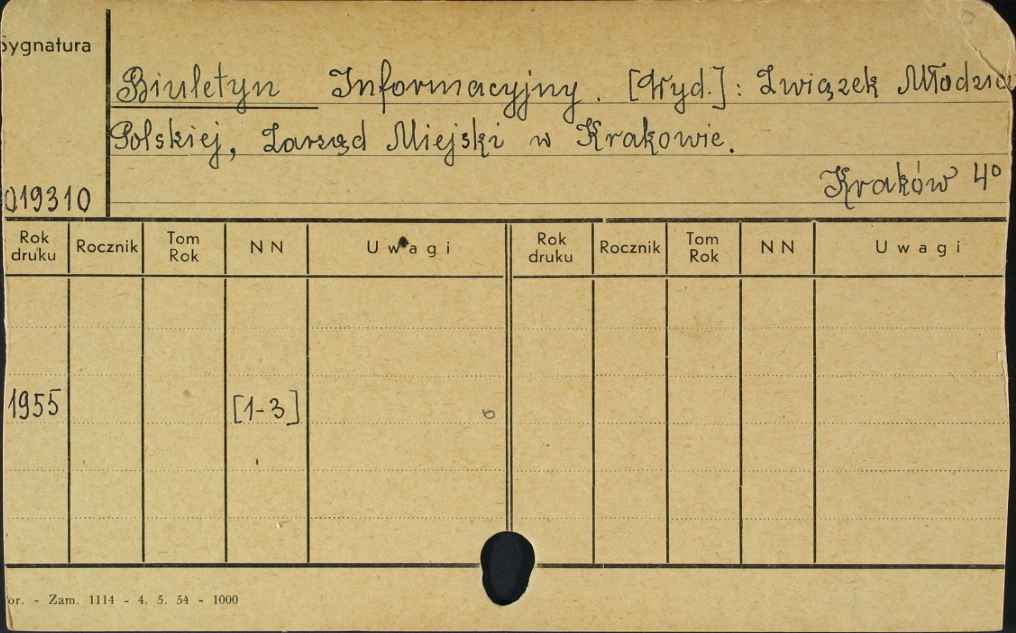 Sygnatura
Biuletyn Informacyjny. [Wyd.]: Związek Młodzie
Polskiej, Zarząd Miejski w Krakowie.
Kraków 4°
019310
Rok druku Rocznik Tom Rok NN Uwagi Rok druku Rocznik Tom Rok NN Uwagi
1955 [1-3]
or. - Zam. 1114 - 4. 5. 54 - 1000